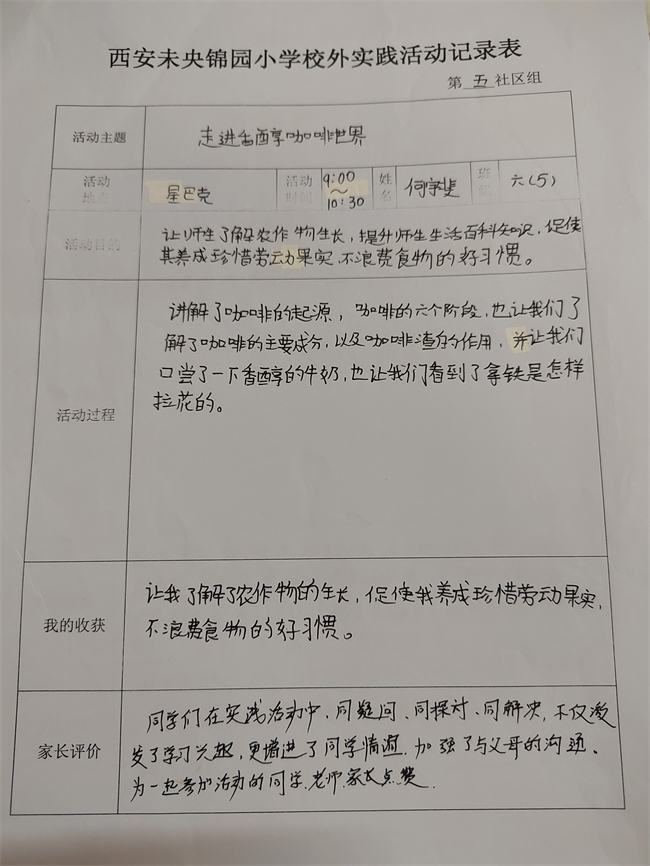 西安未央锦园小学校外实践活动记录表
第 五 社区组
活动主题 走进香醇咖啡世界
活动地点 星巴克 活动时间 9:00～10:30 姓名 何宇斐 班级 六(5)
活动目的 让师生了解农作物生长，提升师生生活百科知识，促使
其养成珍惜劳动果实、不浪费食物的好习惯。
讲解了咖啡的起源，咖啡的六个阶段，也让我们了
解了咖啡的主要成分，以及咖啡渣的作用，并让我们
口尝了一下香醇的牛奶，也让我们看到了拿铁是怎样
活动过程 拉花的。
让我了解了农作物的生长，促使我养成珍惜劳动果实，
我的收获 不浪费食物的好习惯。
同学们在实践活动中、同疑问、同探讨、同解决，不仅激
家长评价 发了学习兴趣，更增进了同学情谊，加强了与父母的沟通、
为一起参加活动的同学、老师、家长点赞.